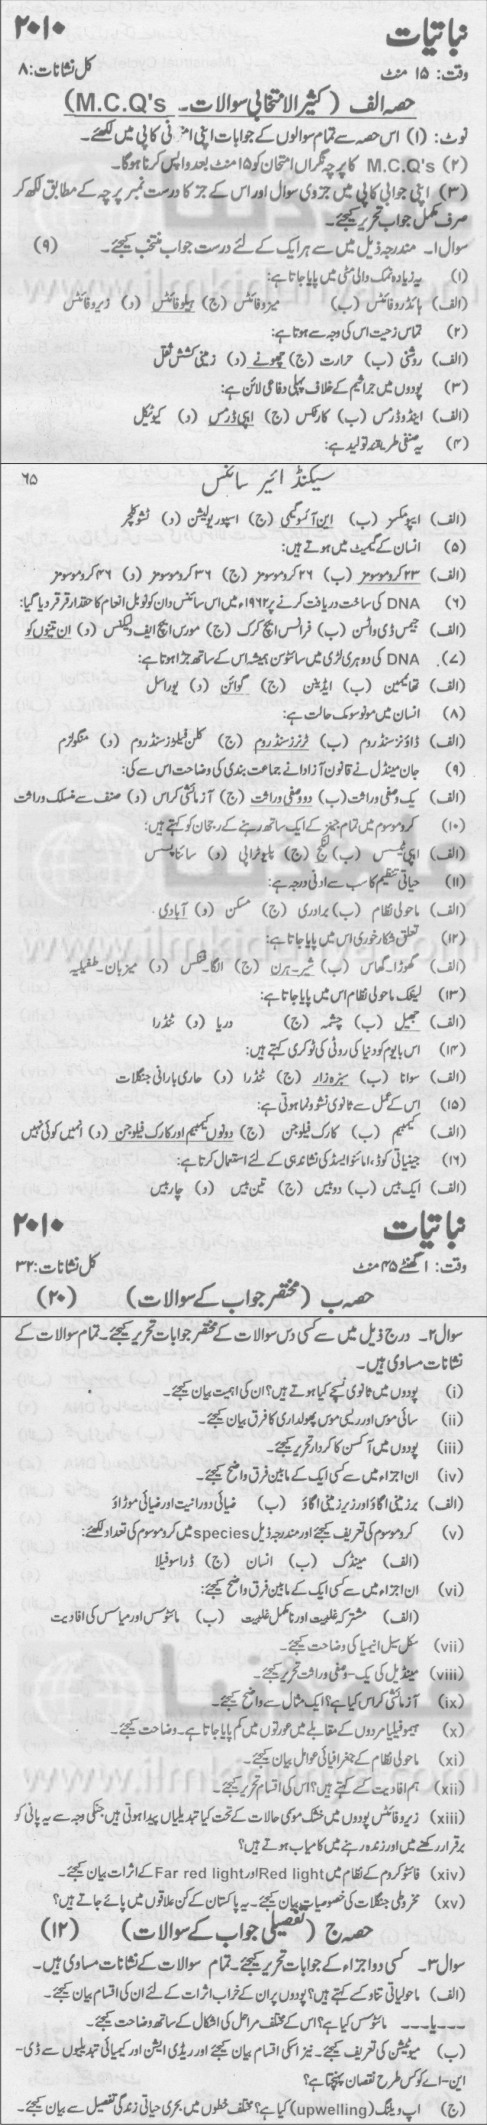 نباتیات ۲۰۱۰
وقت: ۱۵ منٹ کل نشانات: ۸
حصہ الف (کثیر الانتخابی سوالات۔ M.C.Q's)
نوٹ: (۱) اس حصہ سے تمام سوالوں کے جوابات اپنی کاپی میں لکھئے۔
(۲) M.C.Q's کا پرچہ نگراں امتحان کو ۱۵ منٹ بعد واپس کرنا ہوگا۔
(۳) اپنی جوابی کاپی میں جزوی سوال اور اس کے جز کا درست نمبر پرچہ کے مطابق لکھ کر
صرف مکمل جواب تحریر کیجئے۔
سوال ۱۔ مندرجہ ذیل میں سے ہر ایک کے لئے درست جواب منتخب کیجئے۔ (۹)
(۱) یہ زیادہ نمک والی مٹی میں پایا جاتا ہے:
(الف) ہائڈروفائٹس (ب) میزوفائٹس (ج) ہیلوفائٹس (د) زیروفائٹس
(۲) تماس زحیت اس کی وجہ سے ہوتا ہے:
(الف) روشنی (ب) حرارت (ج) چھونے (د) زمینی کشش ثقل
(۳) پودوں میں جراثیم کے خلاف پہلی دفاعی لائن ہے:
(الف) اینڈوڈرمس (ب) کارٹکس (ج) اپی ڈرمس (د) کیوٹیکل
(۴) یہ صنفی طریقئہ تولید ہے:
سیکنڈ ائیر سائنس ۶۵
(الف) ایپومکسز (ب) این آئسوگیمی (ج) اسپورولیشن (د) ٹشو کلچر
(۵) انسان کے گیمیٹ میں ہوتے ہیں:
(الف) ۲۳ کروموسومز (ب) ۲۶ کروموسومز (ج) ۳۶ کروموسومز (د) ۴۶ کروموسومز
(۶) DNA کی ساخت دریافت کرنے پر ۱۹۶۲ء میں اس سائنس دان کو نوبل انعام کا حقدار قرار دیا گیا:
(الف) جیمس ڈی واٹسن (ب) فرانسس ایچ کرک (ج) مورس ایچ ایف ولکنس (د) ان تینوں کو
(۷) DNA کی دوہری لڑی میں سائٹوسن ہمیشہ اس کے ساتھ جڑا ہوتا ہے:
(الف) تھائیمین (ب) ایڈینن (ج) گوانن (د) یوراسل
(۸) انسان میں مونوسومک حالت ہے:
(الف) ڈاؤنز سنڈروم (ب) ٹرنرز سنڈروم (ج) کلن فیلوز سنڈروم (د) منگولزم
(۹) جان مینڈل نے قانون آزادانہ جماعت بندی کی وضاحت اس سے کی:
(الف) یک وصفی وراثت (ب) دو وصفی وراثت (ج) آزمائشی کراس (د) صنف سے منسلک وراثت
(۱۰) کروموسوم میں تمام جینز کے ایک ساتھ رہنے کے رجحان کو کہتے ہیں:
(الف) اپی ٹیسس (ب) لنکیج (ج) پلیوٹراپی (د) سائناپسس
(۱۱) حیاتی تنظیم کا سب سے ادنیٰ درجہ ہے:
(الف) ماحولی نظام (ب) برادری (ج) مسکن (د) آبادی
(۱۲) تعلق شکار خوری اس میں پایا جاتا ہے:
(الف) گھوڑا۔ گھاس (ب) شیر۔ ہرن (ج) الگا۔ فنگس (د) میزبان۔ طفیلیہ
(۱۳) لینٹک ماحولی نظام اس میں پایا جاتا ہے:
(الف) جھیل (ب) چشمہ (ج) دریا (د) ٹنڈرا
(۱۴) اس بایوم کو دنیا کی روٹی کی ٹوکری کہتے ہیں:
(الف) سوانا (ب) سبزہ زار (ج) ٹنڈرا (د) حاری بارانی جنگلات
(۱۵) اس کے عمل سے ثانوی نشوونما ہوتی ہے:
(الف) کیمبیم (ب) کارک فیلوجن (ج) دونوں کیمبیم اور کارک فیلوجن (د) انمیں کوئی نہیں
(۱۶) جینیاتی کوڈ، امائنو ایسڈ کی نشاندہی کے لئے استعمال کرتا ہے:
(الف) ایک بیس (ب) دو بیس (ج) تین بیس (د) چار بیس
نباتیات ۲۰۱۰
وقت: ۱ گھنٹے ۴۵ منٹ کل نشانات: ۳۲
حصہ ب (مختصر جواب کے سوالات) (۲۰)
سوال ۲۔ درج ذیل میں سے کسی دس سوالات کے مختصر جوابات تحریر کیجئے۔ تمام سوالات کے
نشانات مساوی ہیں۔
(i) پودوں میں ثانوی کچے کیا ہوتے ہیں؟ ان کی اہمیت بیان کیجئے۔
(ii) سائی موس اور ریسی موس پھولداری کا فرق بیان کیجئے۔
(iii) پودوں میں آکسن کا کردار تحریر کیجئے۔
(iv) ان اجزاء میں سے کسی ایک کے مابین فرق واضح کیجئے۔
(الف) برزمینی اگاؤ اور زیر زمینی اگاؤ (ب) ضیائی دورانیت اور ضیائی موڑاؤ
(v) کروموسوم کی تعریف کیجئے اور مندرجہ ذیل species میں کروموسوم کی تعداد لکھئے:
(الف) مینڈک (ب) انسان (ج) ڈراسوفیلا
(vi) ان اجزاء میں سے کسی ایک کے مابین فرق واضح کیجئے:
(الف) مشترکہ غلبیت اور نامکمل غلبیت (ب) مائٹوسس اور میاسس کی افادیت
(vii) سکل سیل انیمیا کی وضاحت کیجئے۔
(viii) مینڈیل کی یک۔وصفی وراثت تحریر کیجئے۔
(ix) آزمائشی کراس کیا ہے؟ ایک مثال سے واضح کیجئے۔
(x) ہیموفیلیا مردوں کے مقابلے میں عورتوں میں کم پایا جاتا ہے۔ وضاحت کیجئے۔
(xi) ماحولی نظام کے جغرافیائی عوامل بیان کیجئے۔
(xii) ہم افادیت کسے کہتے ہیں؟ اس کی اقسام تحریر کیجئے۔
(xiii) زیروفائٹس پودوں میں خشک موسمی حالات کے تحت کیا تبدیلیاں پیدا ہوتی ہیں جنکی وجہ سے یہ پانی کو
برقرار رکھنے میں اور زندہ رہنے میں کامیاب ہوتے ہیں؟
(xiv) فائٹوکروم کے نظام میں Red light اور Far red light کے اثرات بیان کیجئے۔
(xv) مخروطی جنگلات کی خصوصیات بیان کیجئے۔ یہ پاکستان کے کن علاقوں میں پائے جاتے ہیں؟
حصہ ج (تفصیلی جواب کے سوالات) (۱۲)
سوال ۳۔ کسی دو اجزاء کے جوابات تحریر کیجئے۔ تمام سوالات کے نشانات مساوی ہیں۔
(الف) ماحولیاتی تناؤ کسے کہتے ہیں؟ پودوں پر ان کے خراب اثرات کے لئے ان کی اقسام بیان کیجئے۔
۔۔۔یا۔۔۔ مائٹوسس کیا ہے؟ اس کے مختلف مراحل کی اشکال کے ساتھ وضاحت کیجئے۔
(ب) میوٹیشن کی تعریف کیجئے۔ نیز اسکی اقسام بیان کیجئے اور ریڈی ایشن اور کیمیائی تبدیلیوں سے ڈی۔
این۔اے کو کس طرح نقصان پہنچتا ہے؟
(ج) اپ ویلنگ (upwelling) کیا ہے؟ مختلف خطوں میں بحری حیاتی زندگی تفصیل سے بیان کیجئے۔